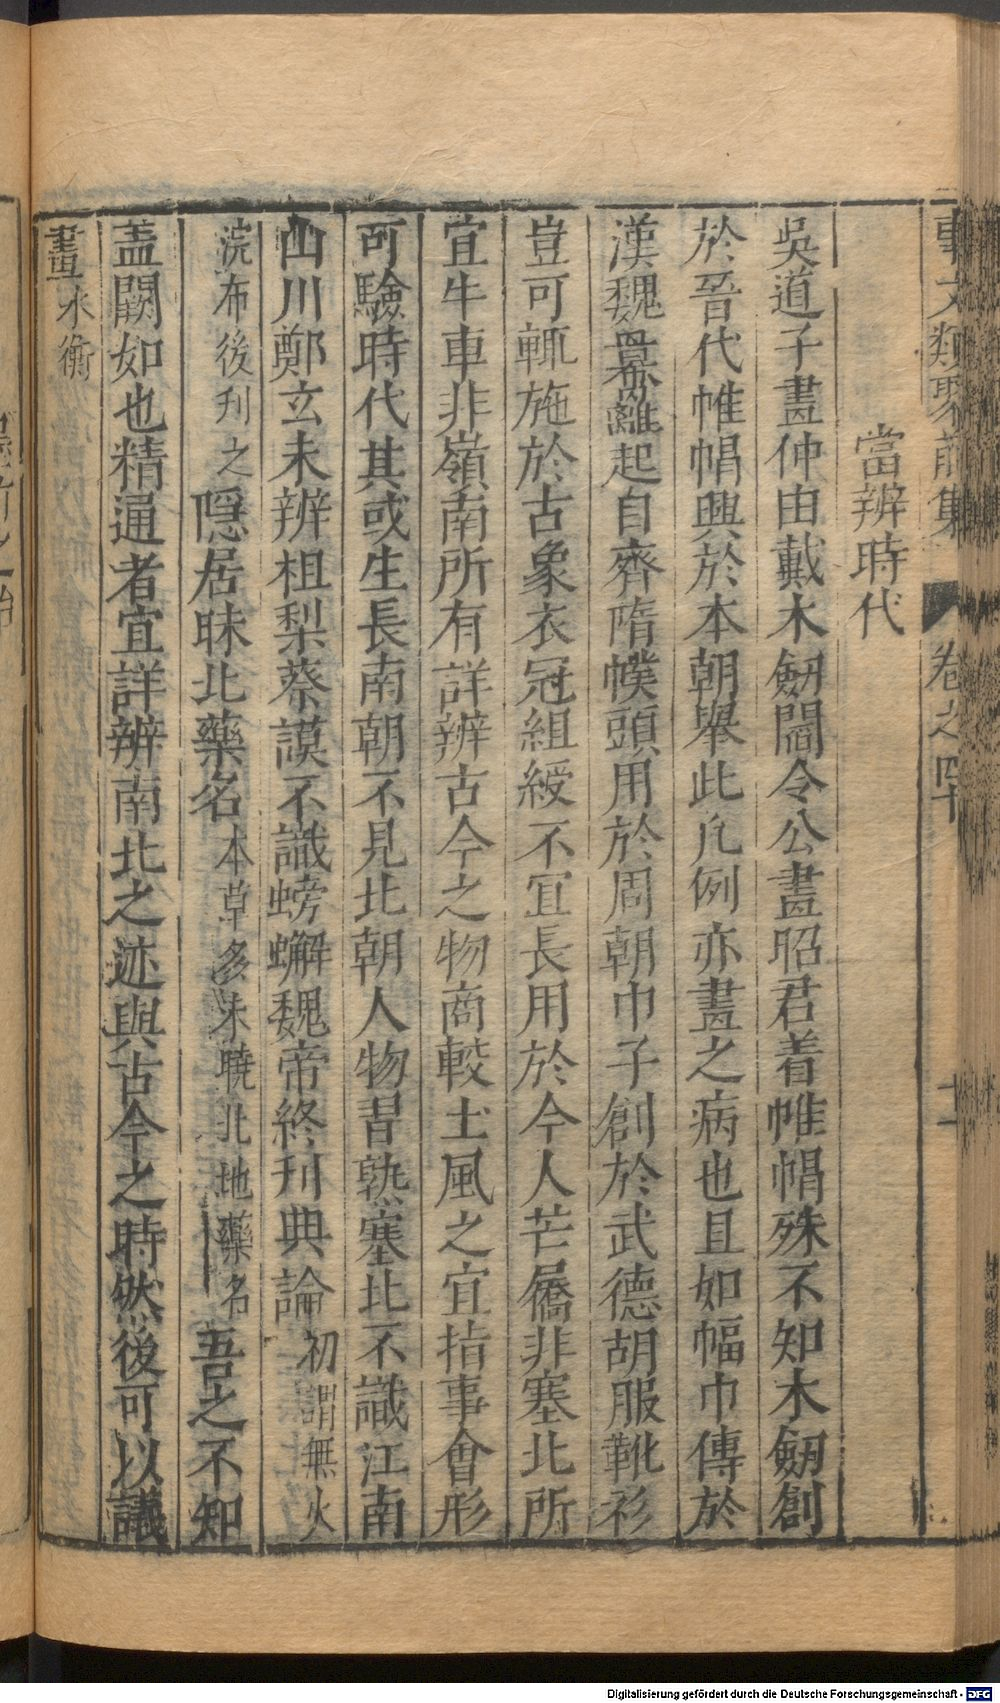 事文類聚前集 卷之四十 十一
當辨時代
吳道子畫仲由戴木劒閻令公畫昭君着帷帽殊不知木劒創
於晉代帷帽興於本朝舉此凡例亦畫之病也且如幅巾傳於
漢魏羃䍦起自齊隋幞頭用於周朝巾子創於武德胡服靴衫
豈可輒施於古象衣冠組綬不冝長用於今人芒屩非塞北所
宜牛車非嶺南所有詳辨古今之物商較土風之宜指事會形
可驗時代其或生長南朝不見北朝人物習熟塞北不識江南
山川鄭玄未辨柤梨蔡謨不識螃蠏魏帝終刋典論初謂無火
浣布後刋之隠居昧北藥名本草多未曉北地藥名吾之不知
盖闕如也精通者宜詳辨南北之迹與古今之時然後可以議
畫水衡
Digitalisierung gefördert durch die Deutsche Forschungsgemeinschaft - DFG